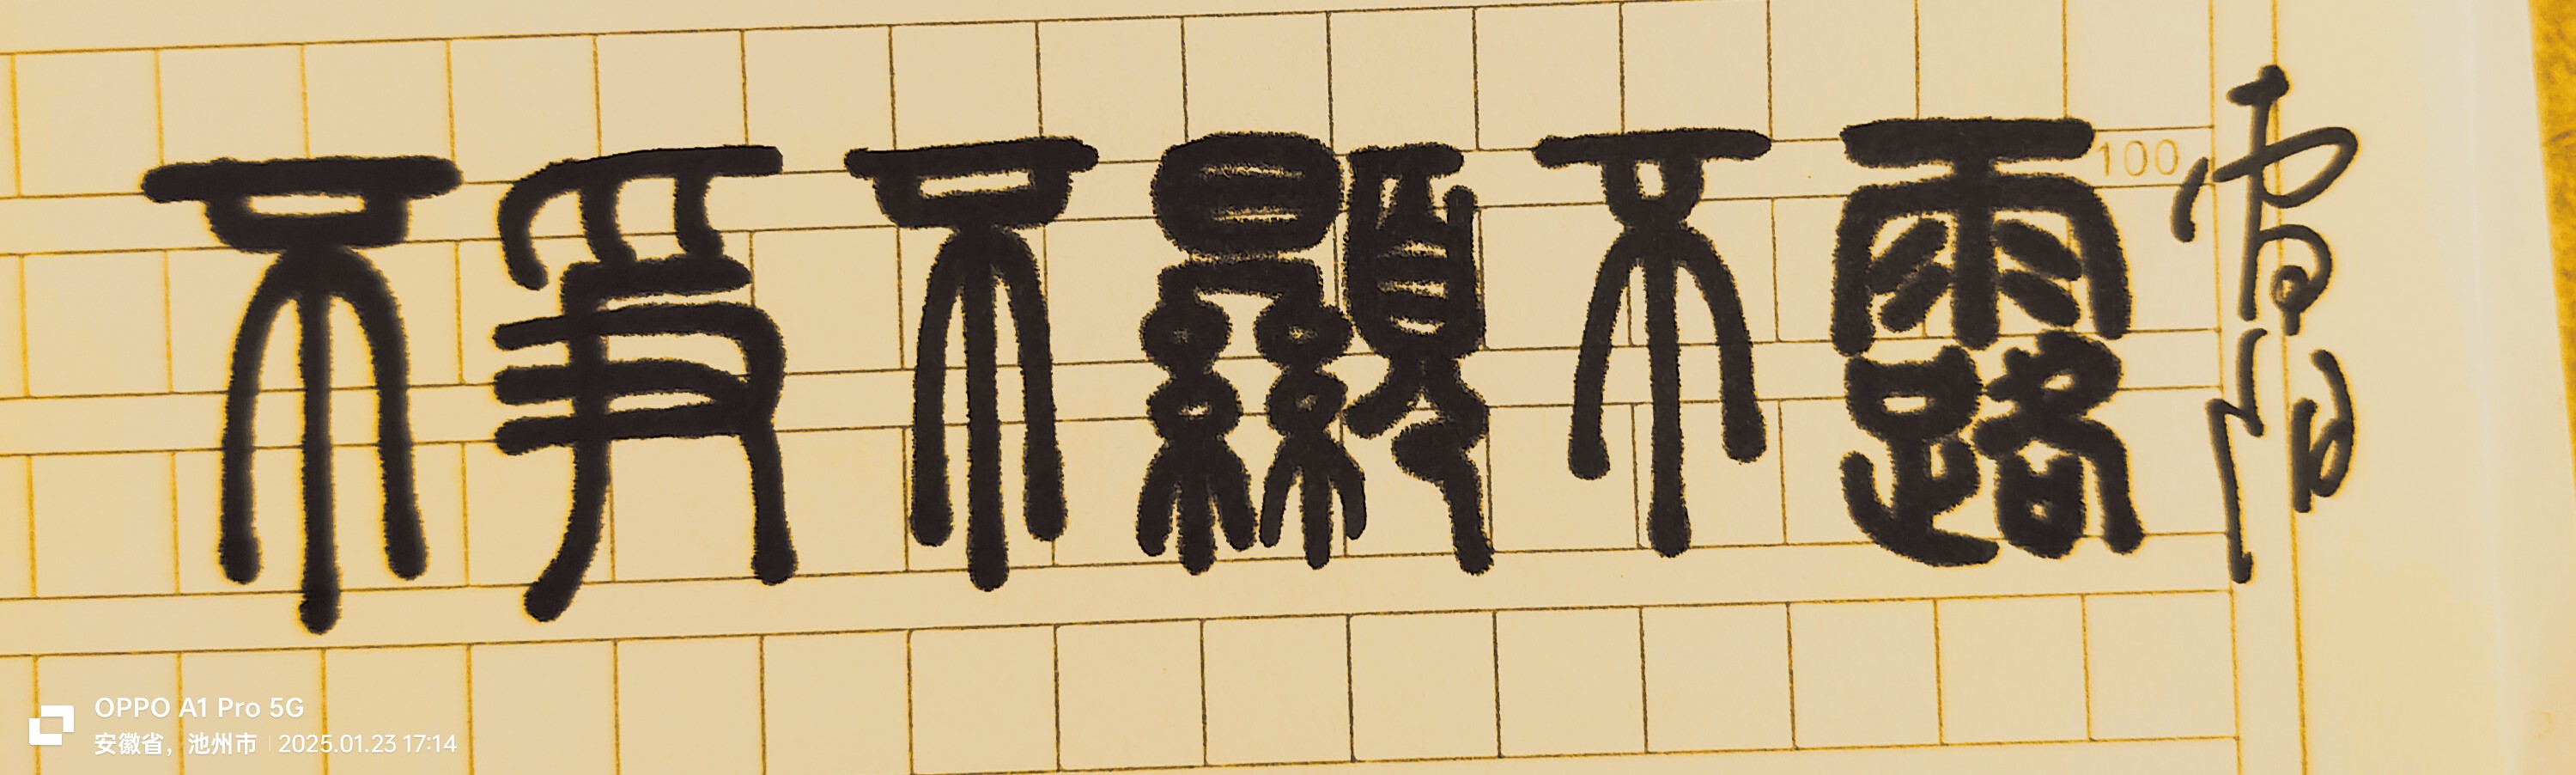 不爭不顯不露
100
OPPO A1 Pro 5G
安徽省，池州市 | 2025.01.23 17:14